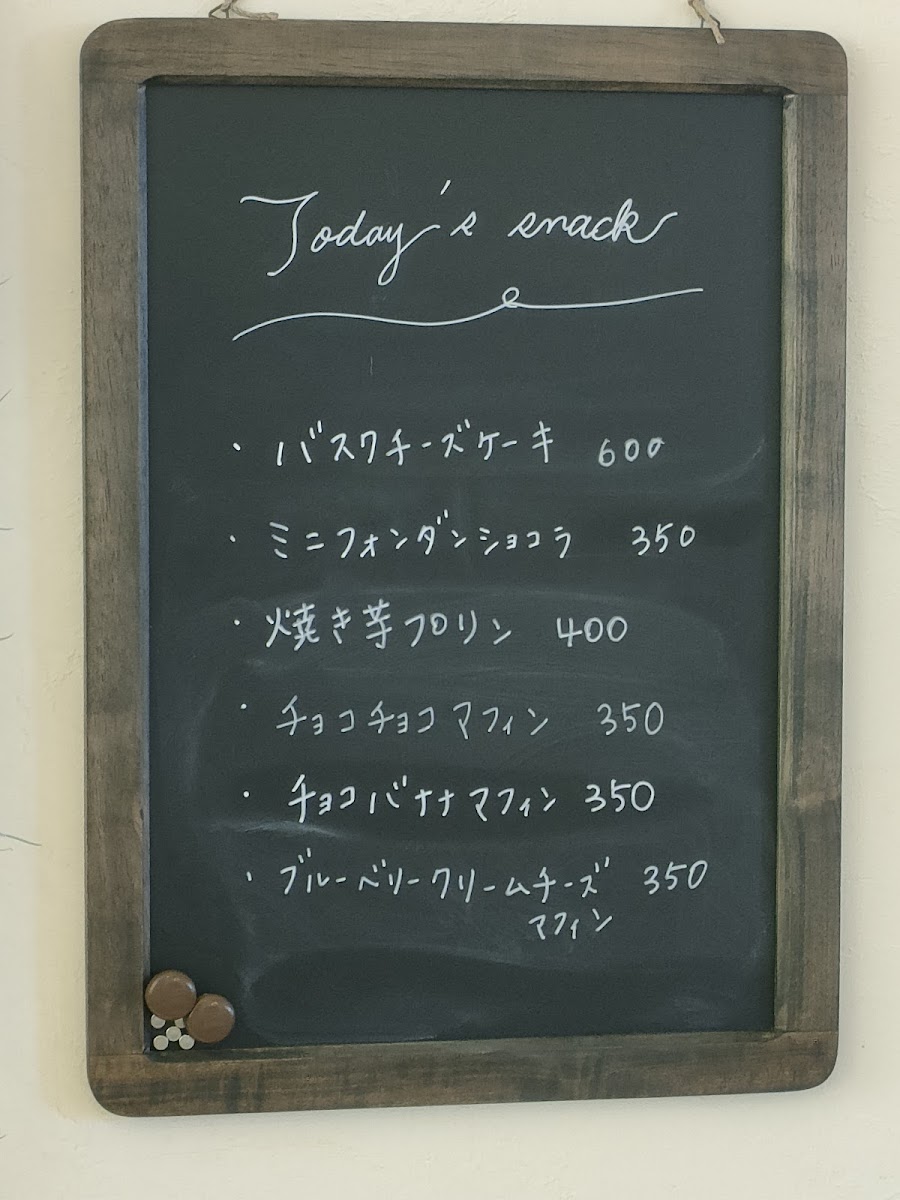 Today's snack
・バスクチーズケーキ 600
・ミニフォンダンショコラ 350
・焼き芋プリン 400
・チョコチョコマフィン 350
・チョコバナナマフィン 350
・ブルーベリークリームチーズ 350
マフィン